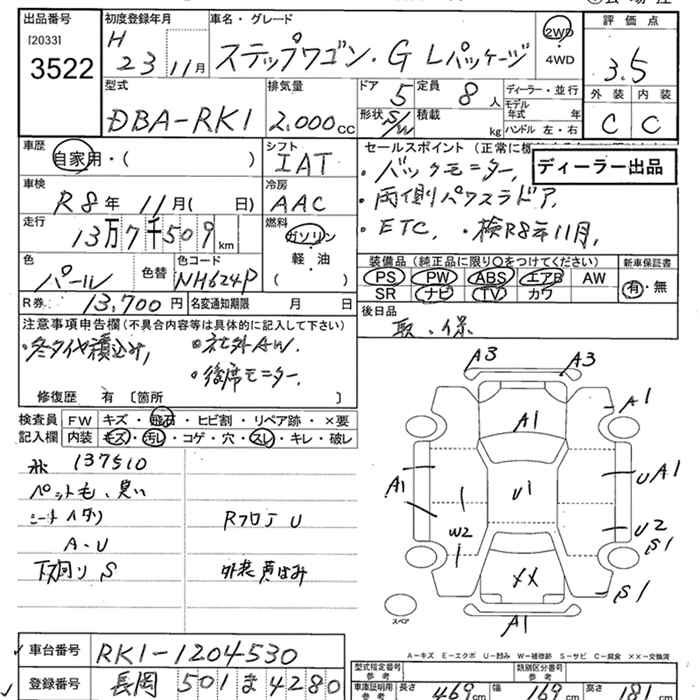 出品番号
[2033]
3522
初度登録年月
H
23 11月
車名・グレード
ステップワゴン・G Lパッケージ
2WD
4WD
評価点
3.5
外装 内装
C C
型式
DBA-RK1
排気量
2.000CC
ドア 5 定員 8人
形状 S/W 積載 kg
ディーラー・並行
モデル年式 年
ハンドル 左・右
車歴
自家用・( )
シフト
IAT
車検
R8年 11月( 日)
冷房
AAC
走行
13万7千509km
燃料
ガソリン
軽・油
( )
色
パール
色替
色コード
NH624P
R券 13,700円 名変通知期限 月 日
セールスポイント
ディーラー出品
・バックモニター,
・両側パワスラドア,
・ETC, ・検R8年11月,
装備品(純正品に限り○をつけてください)
PS PW ABS エアB AW
SR ナビ TV カワ
新車保証書
有・無
後日品
取・保
注意事項申告欄(不具合内容等は具体的に記入して下さい)
・冬タイヤ積込み, ・社外AW.
・後席モニター.
修復歴 有〔箇所 〕
検査員記入欄
FW キズ・飛石・ヒビ割・リペア跡・×要
内装 キズ・汚レ・コゲ・穴・スレ・キレ・破レ
137510
ペット毛、臭い
シートヘタリ
A・U
下廻り S
Rフロア U
外装 黄ばみ
A3 A3
A1
A1
A1
U1
UA1
W2
U2
S1
XX
S1
A1
スペア
A-キズ E-エクボ U-凹み W-補修跡 S-サビ C-腐食 XX-交換済
車台番号 RK1-1204530
登録番号 長岡 501 ま 4280
型式指定番号 参考
類別区分番号 参考
車庫証明用参考 長さ 469cm 幅 169cm 高さ 181cm